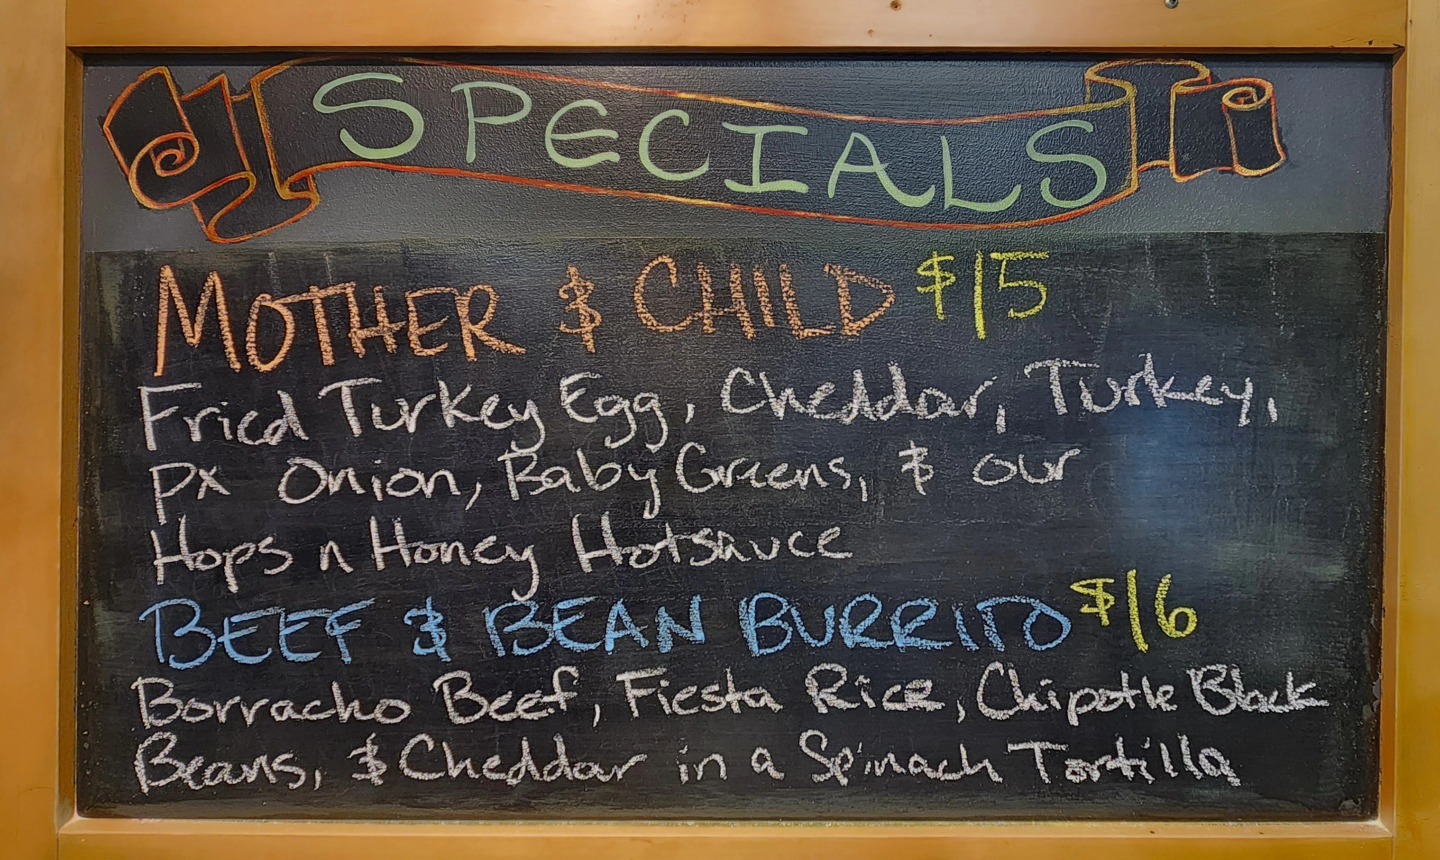 SPECIALS
MOTHER & CHILD $15
Fried Turkey Egg, Cheddar, Turkey,
Px Onion, Baby Greens, & our
Hops n Honey Hotsauce
BEEF & BEAN BURRITO $16
Borracho Beef, Fiesta Rice, Chipotle Black
Beans, & Cheddar in a Spinach Tortilla